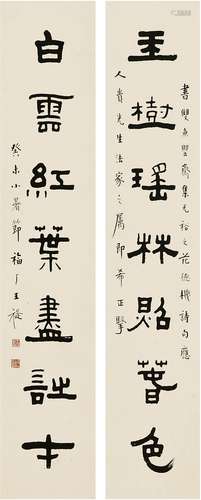 玉樹瑤林照春色
書雙魚壁齋集元裕之范德機詩句應
人貴先生法家之属即希正擘
白雲紅葉盡詩才
癸未小暑節福厂王禔